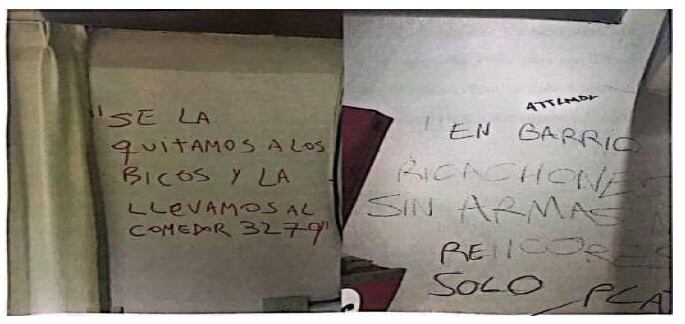 "SE LA
QUITAMOS A LOS
RICOS Y LA
LLEVAMOS AL
COMEDOR 3279"
"EN BARRIO
RICACHONES
SIN ARMAS
RENCORES
SOLO PLAT